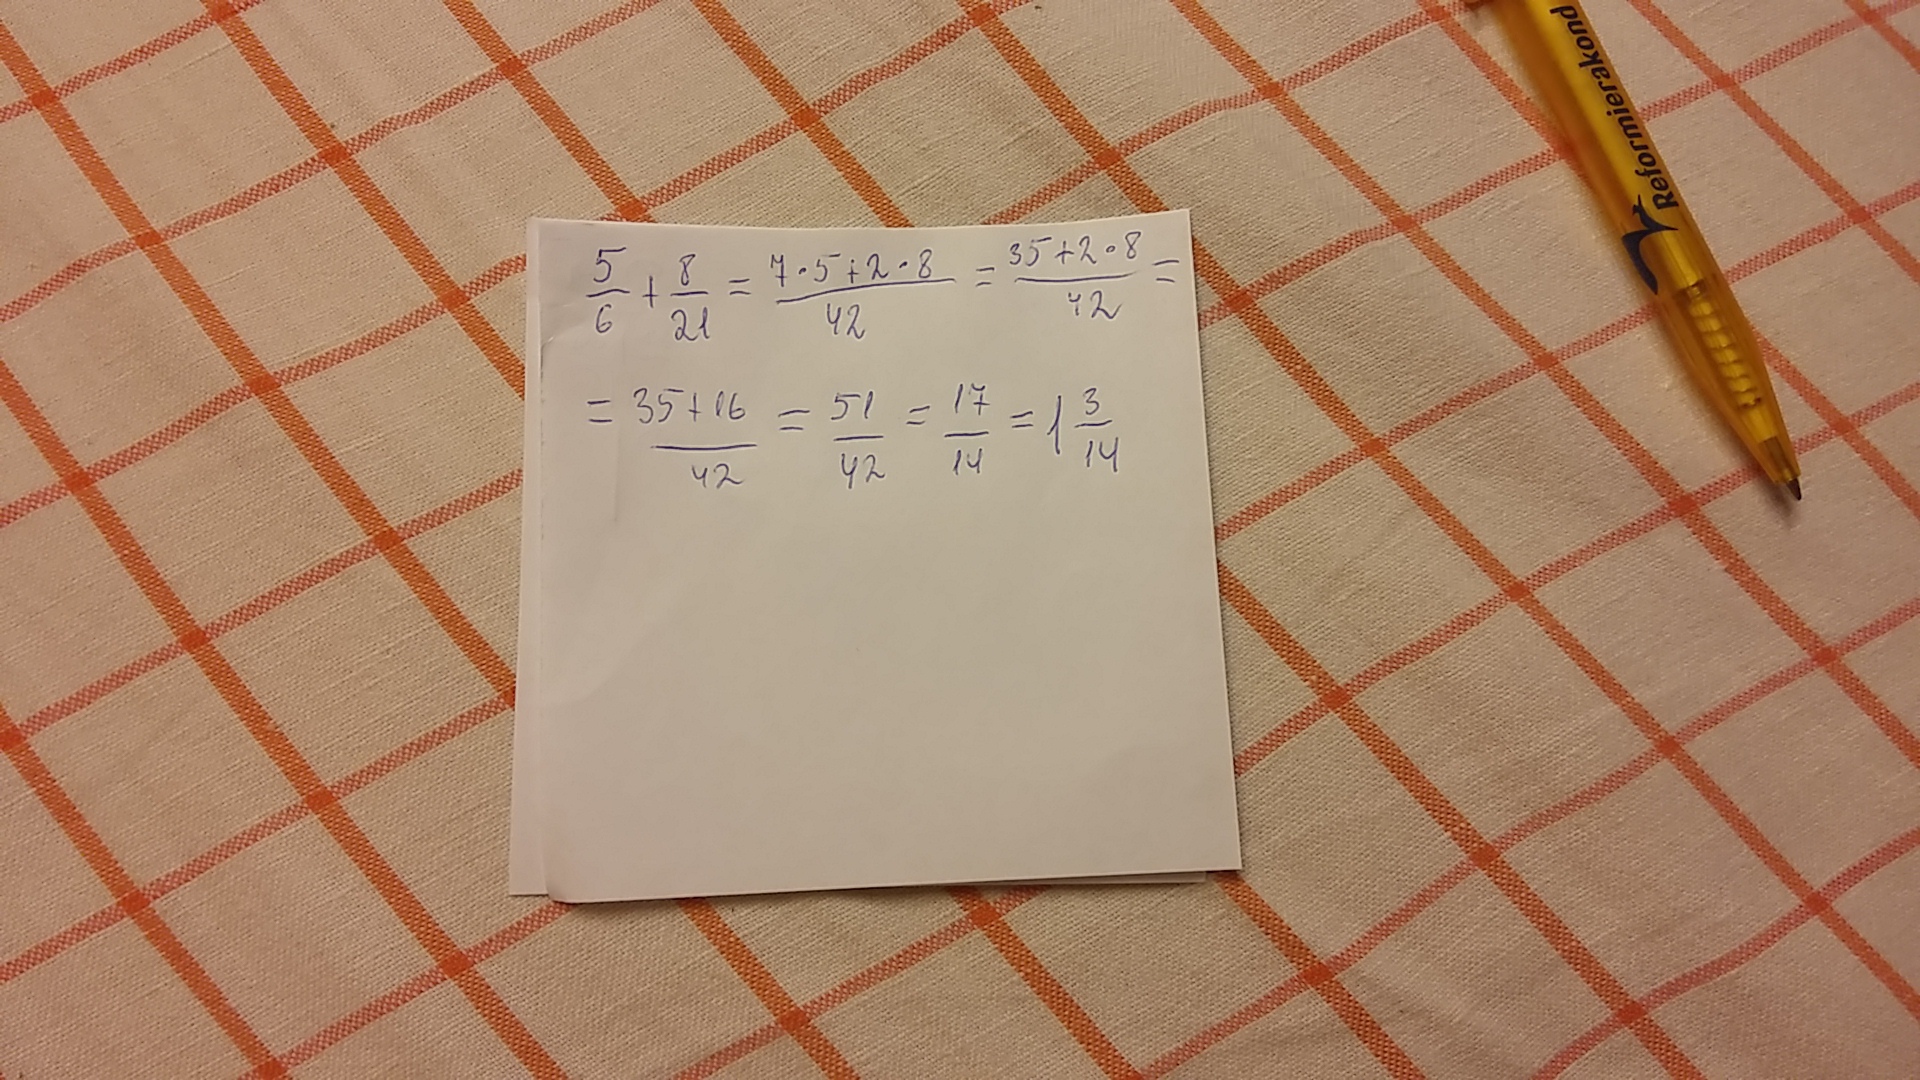 5/6 + 8/21 = (7·5+2·8)/42 = (35+2·8)/42 =
= (35+16)/42 = 51/42 = 17/14 = 1 3/14
Reformierakond